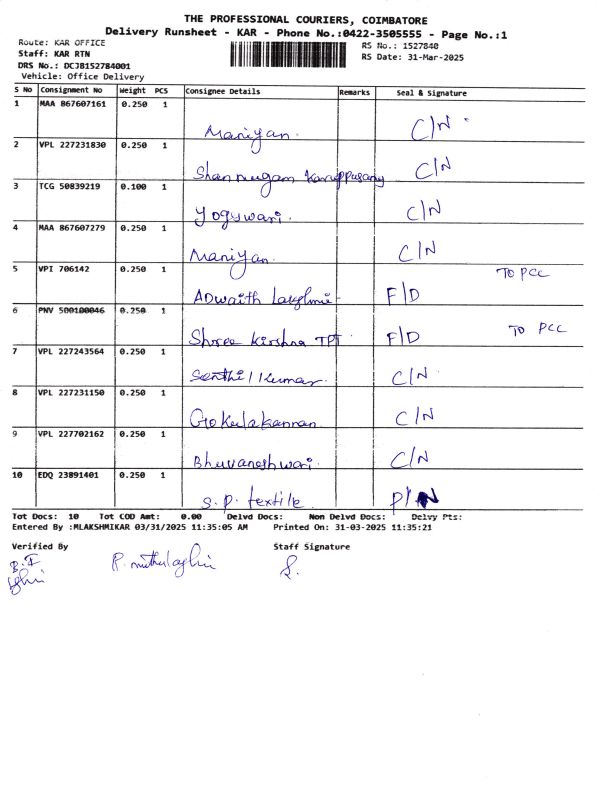 THE PROFESSIONAL COURIERS, COIMBATORE
Delivery Runsheet - KAR - Phone No.:0422-3505555 - Page No.:1
Route: KAR OFFICE
RS No.: 1527840
Staff: KAR RTN
RS Date: 31-Mar-2025
DRS No.: DCJB152784001
Vehicle: Office Delivery
S No Consignment No Weight PCS Consignee Details Remarks Seal & Signature
1 MAA 867607161 0.250 1
Maniyan. C/N
2 VPL 227231830 0.250 1
Shanmugam Karuppusamy C/N
3 TCG 50839219 0.100 1
Yogswari. C/N
4 MAA 867607279 0.250 1
Maniyan. C/N
5 VPI 706142 0.250 1 TO PCC
ADwaith F/D
6 PNV 500100046 0.250 1
Shree Kirshna TPT F/D TO PCC
7 VPL 227243564 0.250 1
Senthil Kumar C/N
8 VPL 227231150 0.250 1
Gokulakannan C/N
9 VPL 227702162 0.250 1
Bhuvaneshwari. C/N
10 EDQ 23891401 0.250 1
S.P. textile
Tot Docs: 10 Tot COD Amt: 0.00 Delvd Docs: Non Delvd Docs: Delvy Pts:
Entered By :MLAKSHMIKAR 03/31/2025 11:35:05 AM Printed On: 31-03-2025 11:35:21
Verified By Staff Signature